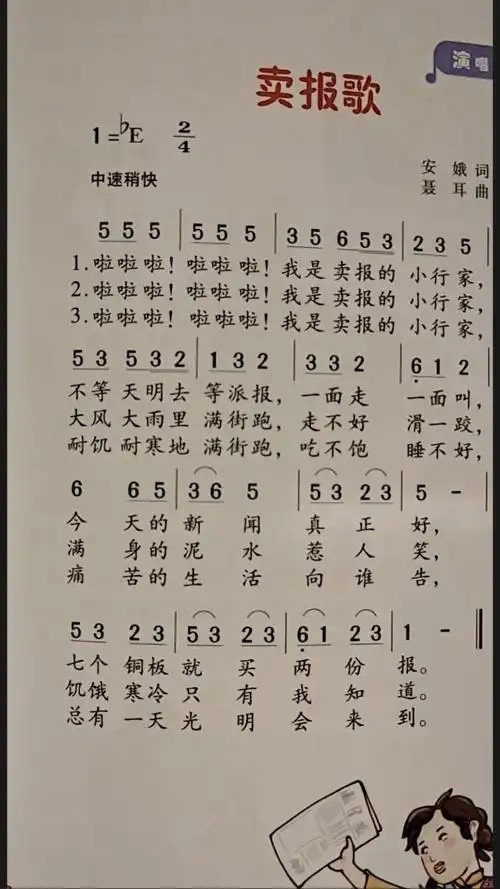 演唱
卖报歌
1=♭E 2/4
中速稍快
安娥词
聂耳曲
5 5 5 | 5 5 5 | 3 5 6 5 3 | 2 3 5 |
1.啦啦啦! 啦啦啦! 我是卖报的 小行家,
2.啦啦啦! 啦啦啦! 我是卖报的 小行家,
3.啦啦啦! 啦啦啦! 我是卖报的 小行家,
5 3 5 3 2 | 1 3 2 | 3 3 2 | 6̣ 1 2 |
不等 天明去 等派报, 一面走 一面叫,
大风 大雨里 满街跑, 走不好 滑一跤,
耐饥 耐寒地 满街跑, 吃不饱 睡不好,
6 6 5 | 3 6 5 | 5 3 2 3 | 5 - |
今 天的 新 闻 真 正 好,
满 身的 泥 水 惹 人 笑,
痛 苦的 生 活 向 谁 告,
5 3 2 3 | 5 3 2 3 | 6̣ 1 2 3 | 1 - ‖
七个 铜板 就 买 两 份 报。
饥饿 寒冷 只 有 我 知 道。
总有 一天 光 明 会 来 到。